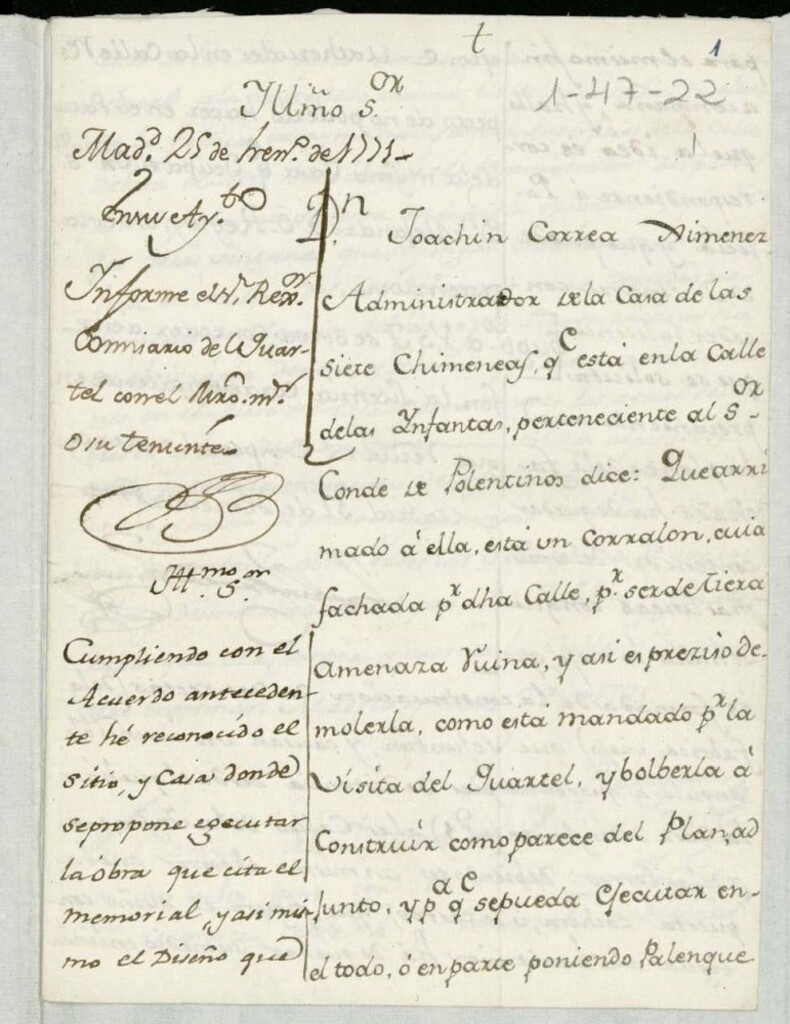 t
1
1-47-22
Yllmo. Sor
Madd. 25 de henro. de 1771-
En su Ayto
Informe el Sr. Rexor.
Comisario del Quar-
tel con el Mro. mr.
o su teniente
Yllmo. Sor
Cumpliendo con el
Acuerdo anteceden-
te hé reconocido el
sitio, y Casa donde
se propone egecutar
la óbra que cita el
memorial, y asi mis-
mo el Diseño que
Dn. Joachin Correa Ximenez
Administrador de la Casa de las
siete Chimeneas, q.e está en la Calle
de las Ynfantas, perteneciente al Sor
Conde de Polentinos dice: Que arri
mado á ella, está un Corralon, cuia
fachada pr. dha Calle, pr. ser de tiera
amenaza Ruina, y asi es preziso de-
molerla, como está mandado pr. la
Visita del Quartel, y bolberla á
Construir como parece del Plan, ad
junto, y pa. qe. se pueda Ejecutar en-
el todo, ó en parte poniendo Palenque